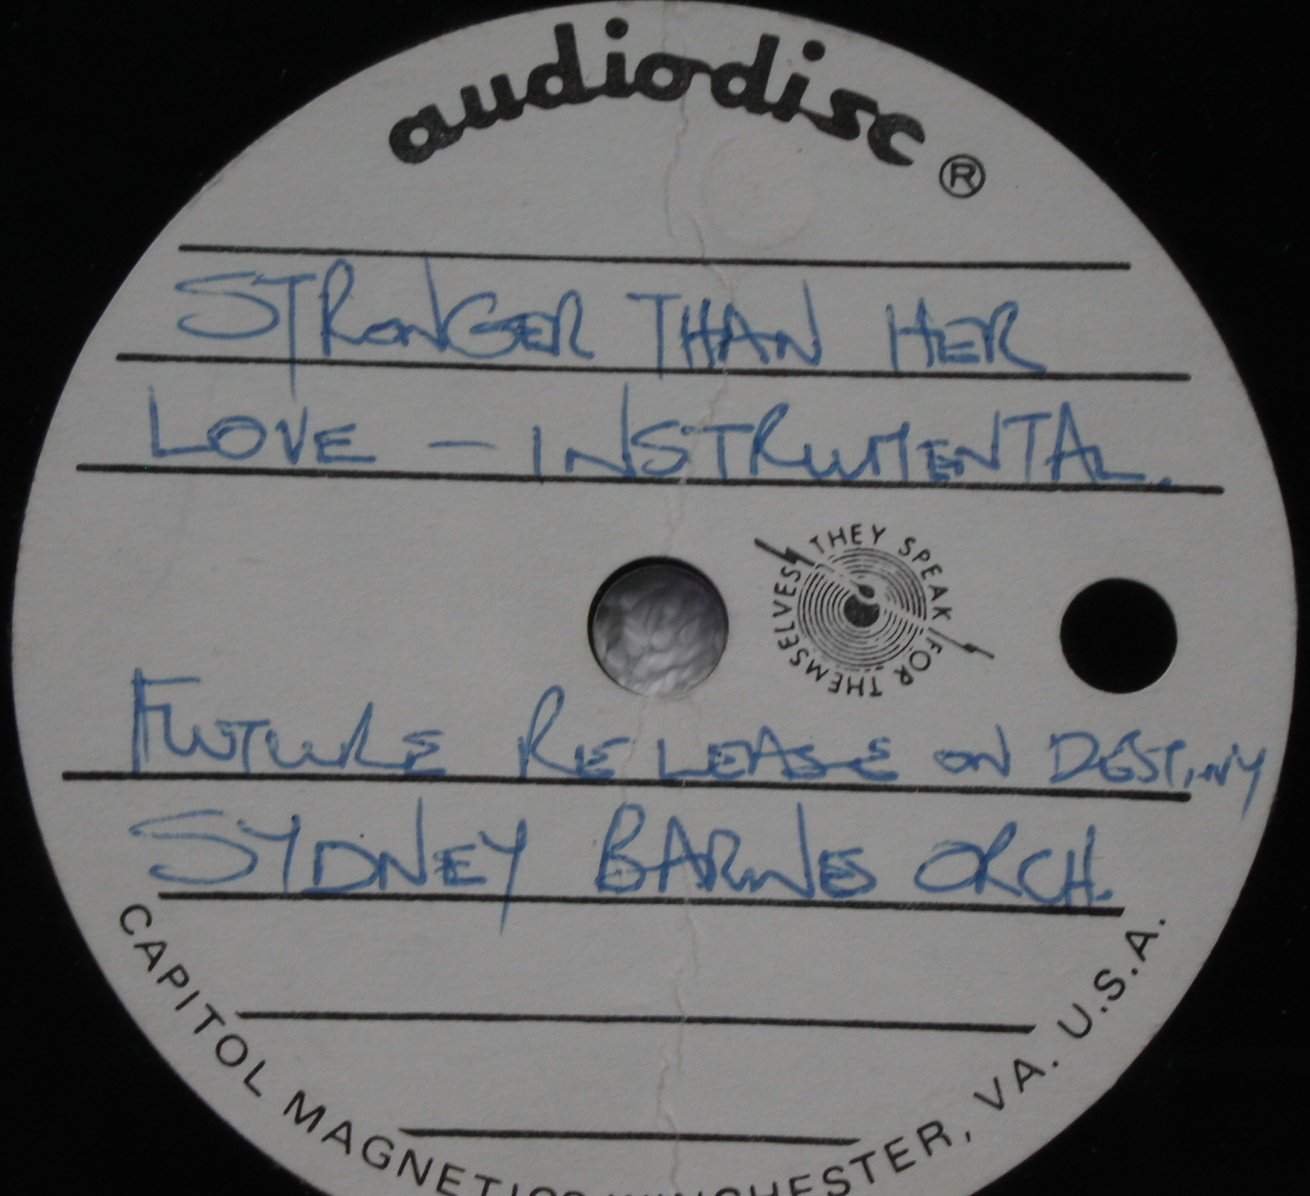 audiodisc ®
STRONGER THAN HER
LOVE – INSTRUMENTAL.
THEY SPEAK FOR THEMSELVES
FUTURE RELEASE ON DESTINY
SYDNEY BARNES ORCH.
CAPITOL MAGNETICS WINCHESTER, VA. U.S.A.